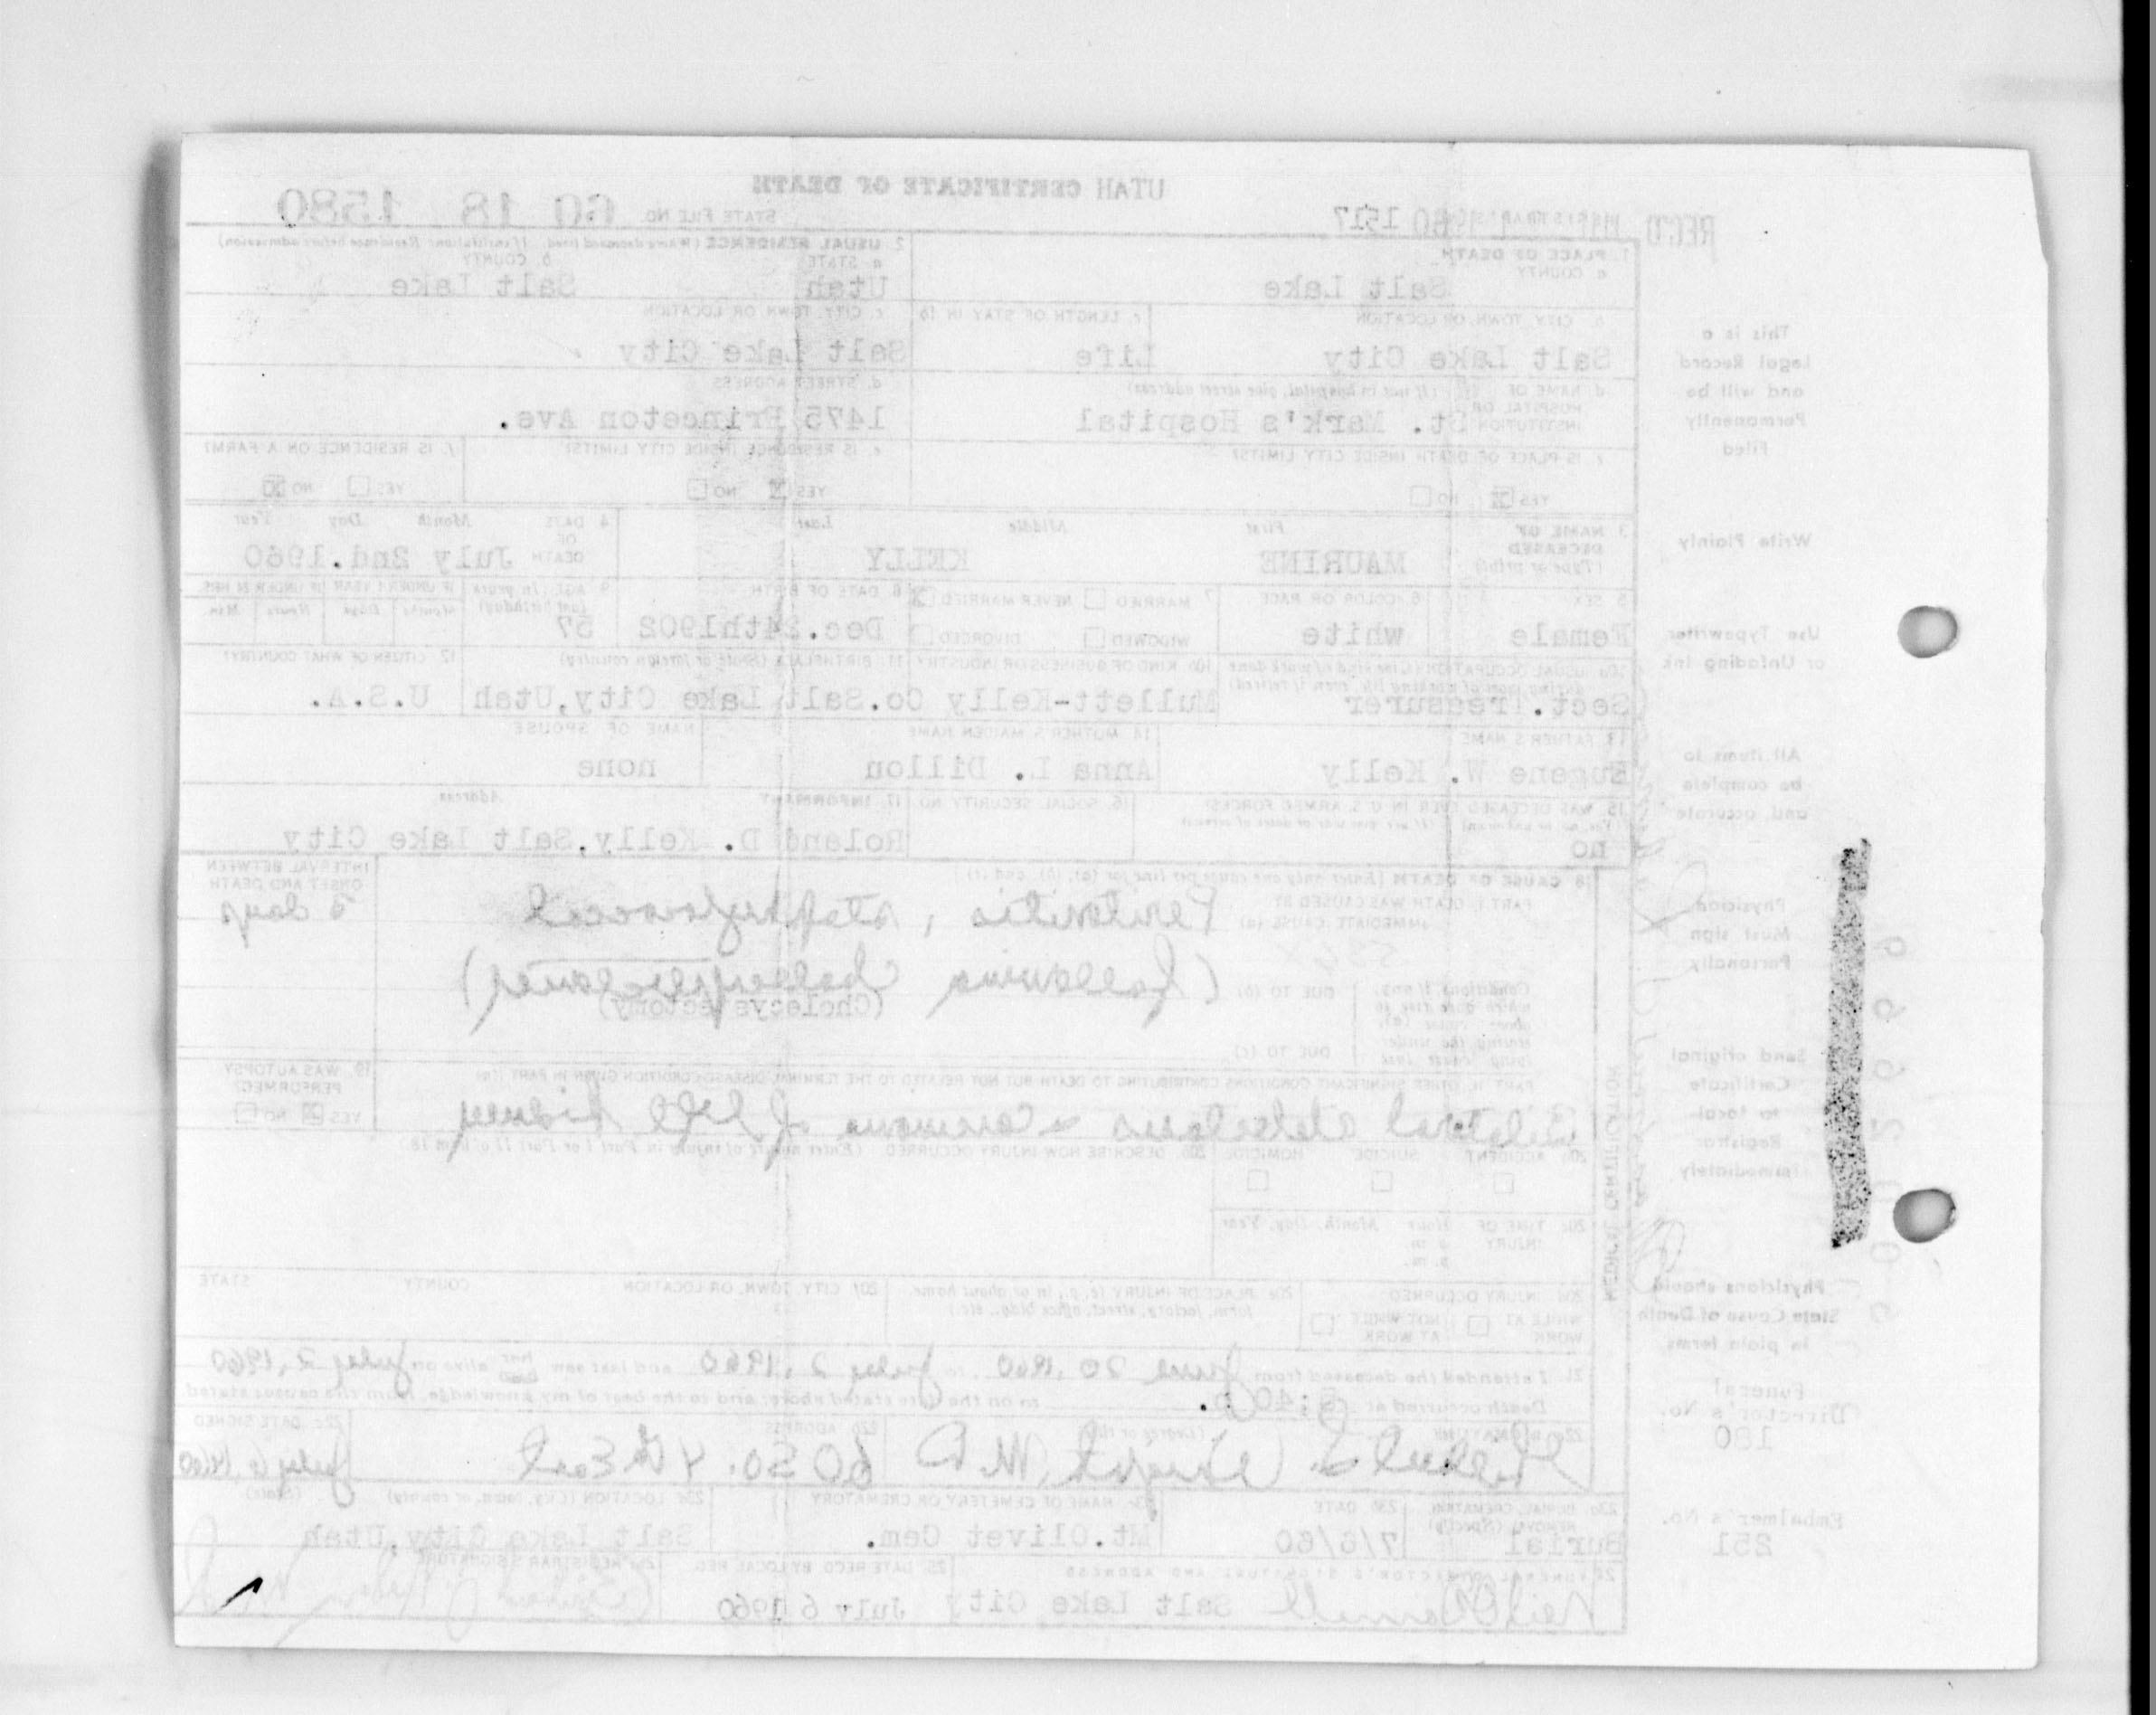 UTAH CERTIFICATE OF DEATH
REC'D 1960 1517 STATE FILE NO. 60 18 1580
1. PLACE OF DEATH
a. COUNTY
Salt Lake
2. USUAL RESIDENCE (Where deceased lived. If institution: Residence before admission)
a. STATE b. COUNTY
Utah Salt Lake
b. CITY, TOWN, OR LOCATION c. LENGTH OF STAY IN 1b
Salt Lake City Life
c. CITY, TOWN OR LOCATION
Salt Lake City
d. NAME OF HOSPITAL OR INSTITUTION (If not in hospital, give street address)
St. Mark's Hospital
d. STREET ADDRESS
1475 Princeton Ave.
e. IS PLACE OF DEATH INSIDE CITY LIMITS?
YES NO
e. IS RESIDENCE INSIDE CITY LIMITS? f. IS RESIDENCE ON A FARM?
YES NO YES NO
3. NAME OF DECEASED (Type or print) First Middle Last
MAURINE KELLY
4. DATE OF DEATH Month Day Year
July 2nd.1960
5. SEX 6. COLOR OR RACE
Female white
7. MARRIED NEVER MARRIED
WIDOWED DIVORCED
8. DATE OF BIRTH
Dec.24th1902
9. AGE (In years last birthday) IF UNDER 1 YEAR IF UNDER 24 HRS.
Months Days Hours Min.
57
10a. USUAL OCCUPATION (Give kind of work done during most of working life, even if retired)
Sect. Treasurer
10b. KIND OF BUSINESS OR INDUSTRY
Mullett-Kelly Co.
11. BIRTHPLACE (State or foreign country)
Salt Lake City,Utah
12. CITIZEN OF WHAT COUNTRY?
U.S.A.
13. FATHER'S NAME
Eugene W. Kelly
14. MOTHER'S MAIDEN NAME
Anna L. Dillon
NAME OF SPOUSE
none
15. WAS DECEASED EVER IN U.S. ARMED FORCES?
(Yes, no, or unknown) (If yes, give war or dates of service)
no
16. SOCIAL SECURITY NO.
17. INFORMANT Address
Roland D. Kelly,Salt Lake City
18. CAUSE OF DEATH (Enter only one cause per line for (a), (b), and (c).)
PART I. DEATH WAS CAUSED BY:
IMMEDIATE CAUSE (a) Peritonitis, staphylococcal
INTERVAL BETWEEN ONSET AND DEATH
3 days
Conditions, if any, which gave rise to above cause (a), stating the underlying cause last.
DUE TO (b)
(following
(Cholecystectomy)
DUE TO (c)
PART II. OTHER SIGNIFICANT CONDITIONS CONTRIBUTING TO DEATH BUT NOT RELATED TO THE TERMINAL DISEASE CONDITION GIVEN IN PART I(a)
Bilateral atelectasis & carcinoma of left kidney
19. WAS AUTOPSY PERFORMED?
YES NO
20a. ACCIDENT SUICIDE HOMICIDE
20b. DESCRIBE HOW INJURY OCCURRED. (Enter nature of injury in Part I or Part II of item 18.)
20c. TIME OF INJURY Hour Month, Day, Year
a. m.
p. m.
20d. INJURY OCCURRED
WHILE AT WORK NOT WHILE AT WORK
20e. PLACE OF INJURY (e. g., in or about home, farm, factory, street, office bldg., etc.)
20f. CITY, TOWN, OR LOCATION COUNTY STATE
21. I attended the deceased from June 20, 1960 to July 2, 1960 and last saw her alive on July 2, 1960
Death occurred at 5:40 p. m on the date stated above; and to the best of my knowledge, from the causes stated.
22a. SIGNATURE (Degree or title)
M.D
22b. ADDRESS
60 So. 4th East
22c. DATE SIGNED
July 6, 1960
23a. BURIAL, CREMATION, REMOVAL (Specify)
Burial
23b. DATE
7/6/60
23c. NAME OF CEMETERY OR CREMATORY
Mt.Olivet Cem.
23d. LOCATION (City, town, or county) (State)
Salt Lake City,Utah
24. FUNERAL DIRECTOR'S SIGNATURE AND ADDRESS
Salt Lake City
25. DATE RECD BY LOCAL REG.
July 6 1960
26. REGISTRAR'S SIGNATURE
MEDICAL CERTIFICATION
This is a
Legal Record
and will be
Permanently
Filed
Write Plainly
Use Typewriter
or Unfading Ink
All items to
be complete
and accurate
Physician
Must sign
Personally
Send original
Certificate
to local
Registrar
Immediately
Physicians should
State Cause of Death
in plain terms
Funeral
Director's No.
180
Embalmer's No.
251